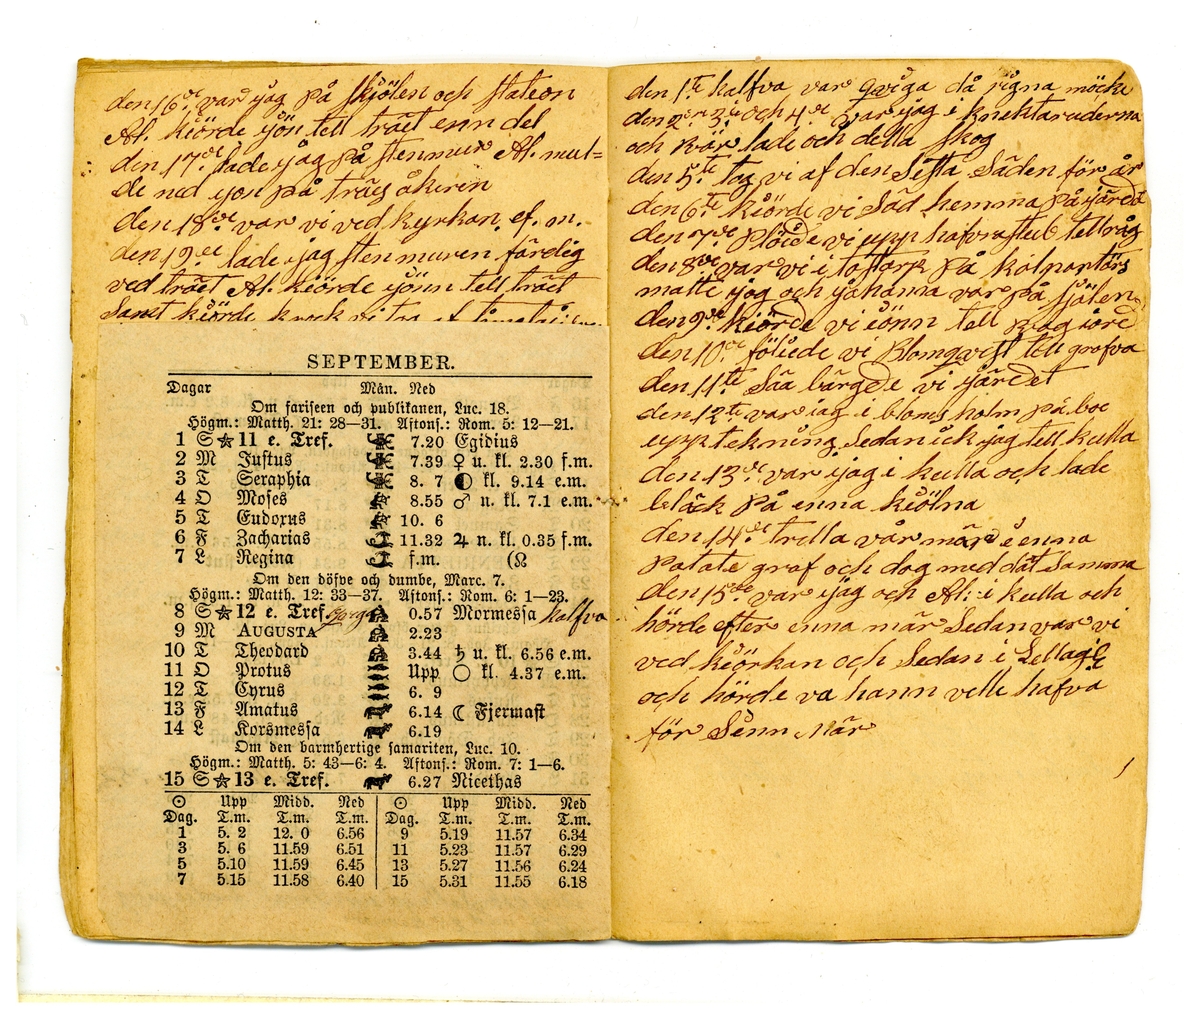 den 16de var jag på skjölen och station
Al. kiörde jön tell träet enn del
den 17de lade jag på stenmur Al. mul=
de ned jon på träs åkern
den 18de var vi ved kyrkan. ef. m.
den 19de lade jag stenmuren färdig
ved träet Al. kiörde jönn tell träet
Samt kiörde krock vi tra af
SEPTEMBER.
Dagar Mån. Ned
Om fariseen och publikanen, Luc. 18.
Högm.: Matth. 21: 28—31. Aftons.: Rom. 5: 12—21.
1 S ☆ 11 e. Tref. 7.20 Egidius
2 M Justus 7.39 ♀ u. kl. 2.30 f.m.
3 T Seraphia 8. 7 ◐ kl. 9.14 e.m.
4 O Moses 8.55 ♂ n. kl. 7.1 e.m.
5 T Eudoxus 10. 6
6 F Zacharias 11.32 ♃ n. kl. 0.35 f.m.
7 L Regina f.m. (☊
Om den döfve och dumbe, Marc. 7.
Högm.: Matth. 12: 33—37. Aftons.: Rom. 6: 1—23.
8 S ☆ 12 e. Tref. 0.57 Mormessa kalfva
9 M AUGUSTA 2.23
10 T Theodard 3.44 ♄ u. kl. 6.56 e.m.
11 O Protus Upp ○ kl. 4.37 e.m.
12 T Cyrus 6. 9
13 F Amatus 6.14 ☾ Fjermast
14 L Korsmessa 6.19
Om den barmhertige samariten, Luc. 10.
Högm.: Matth. 5: 43—6: 4. Aftons.: Rom. 7: 1—6.
15 S ☆ 13 e. Tref. 6.27 Nicethas
☉ Upp Midd. Ned ☉ Upp Midd. Ned
Dag. T.m. T.m. T.m. Dag. T.m. T.m. T.m.
1 5. 2 12. 0 6.56 9 5.19 11.57 6.34
3 5. 6 11.59 6.51 11 5.23 11.57 6.29
5 5.10 11.59 6.45 13 5.27 11.56 6.24
7 5.15 11.58 6.40 15 5.31 11.55 6.18
den 1te kalfva var qviga då rigna möcke
den 2dr 3i och 4de var jag i knektaruderna
och kör lade och della skog
den 5te tog vi af den Sista Säden för år
den 6te kiörde vi Säd hemma på järdet
den 7de Plöide vi upp hafvrastub tell råg
den 8de var vi i toftark på kolportörs
matte jag och johanna var på sjölen
den 9de kiörde vi iönn tell rag iord
den 10de föliede vi Blomqvist tell grafva
den 11te Säa bärgde vi järdet
den 12te var iag i bloms holm på boe
upp tekning Sedan ick jag tell kulla
den 13de var jag i kulla och lade
bläck på enna kiölna
den 14de trella vår mär i enna
Potate graf och dog med dät Samma
den 15de var jag och Al: i kulla och
hörde efter enna mär Sedan var vi
ved kiörkan och Sedan i
och hörde va hann velle hafva
för Sinn Mär